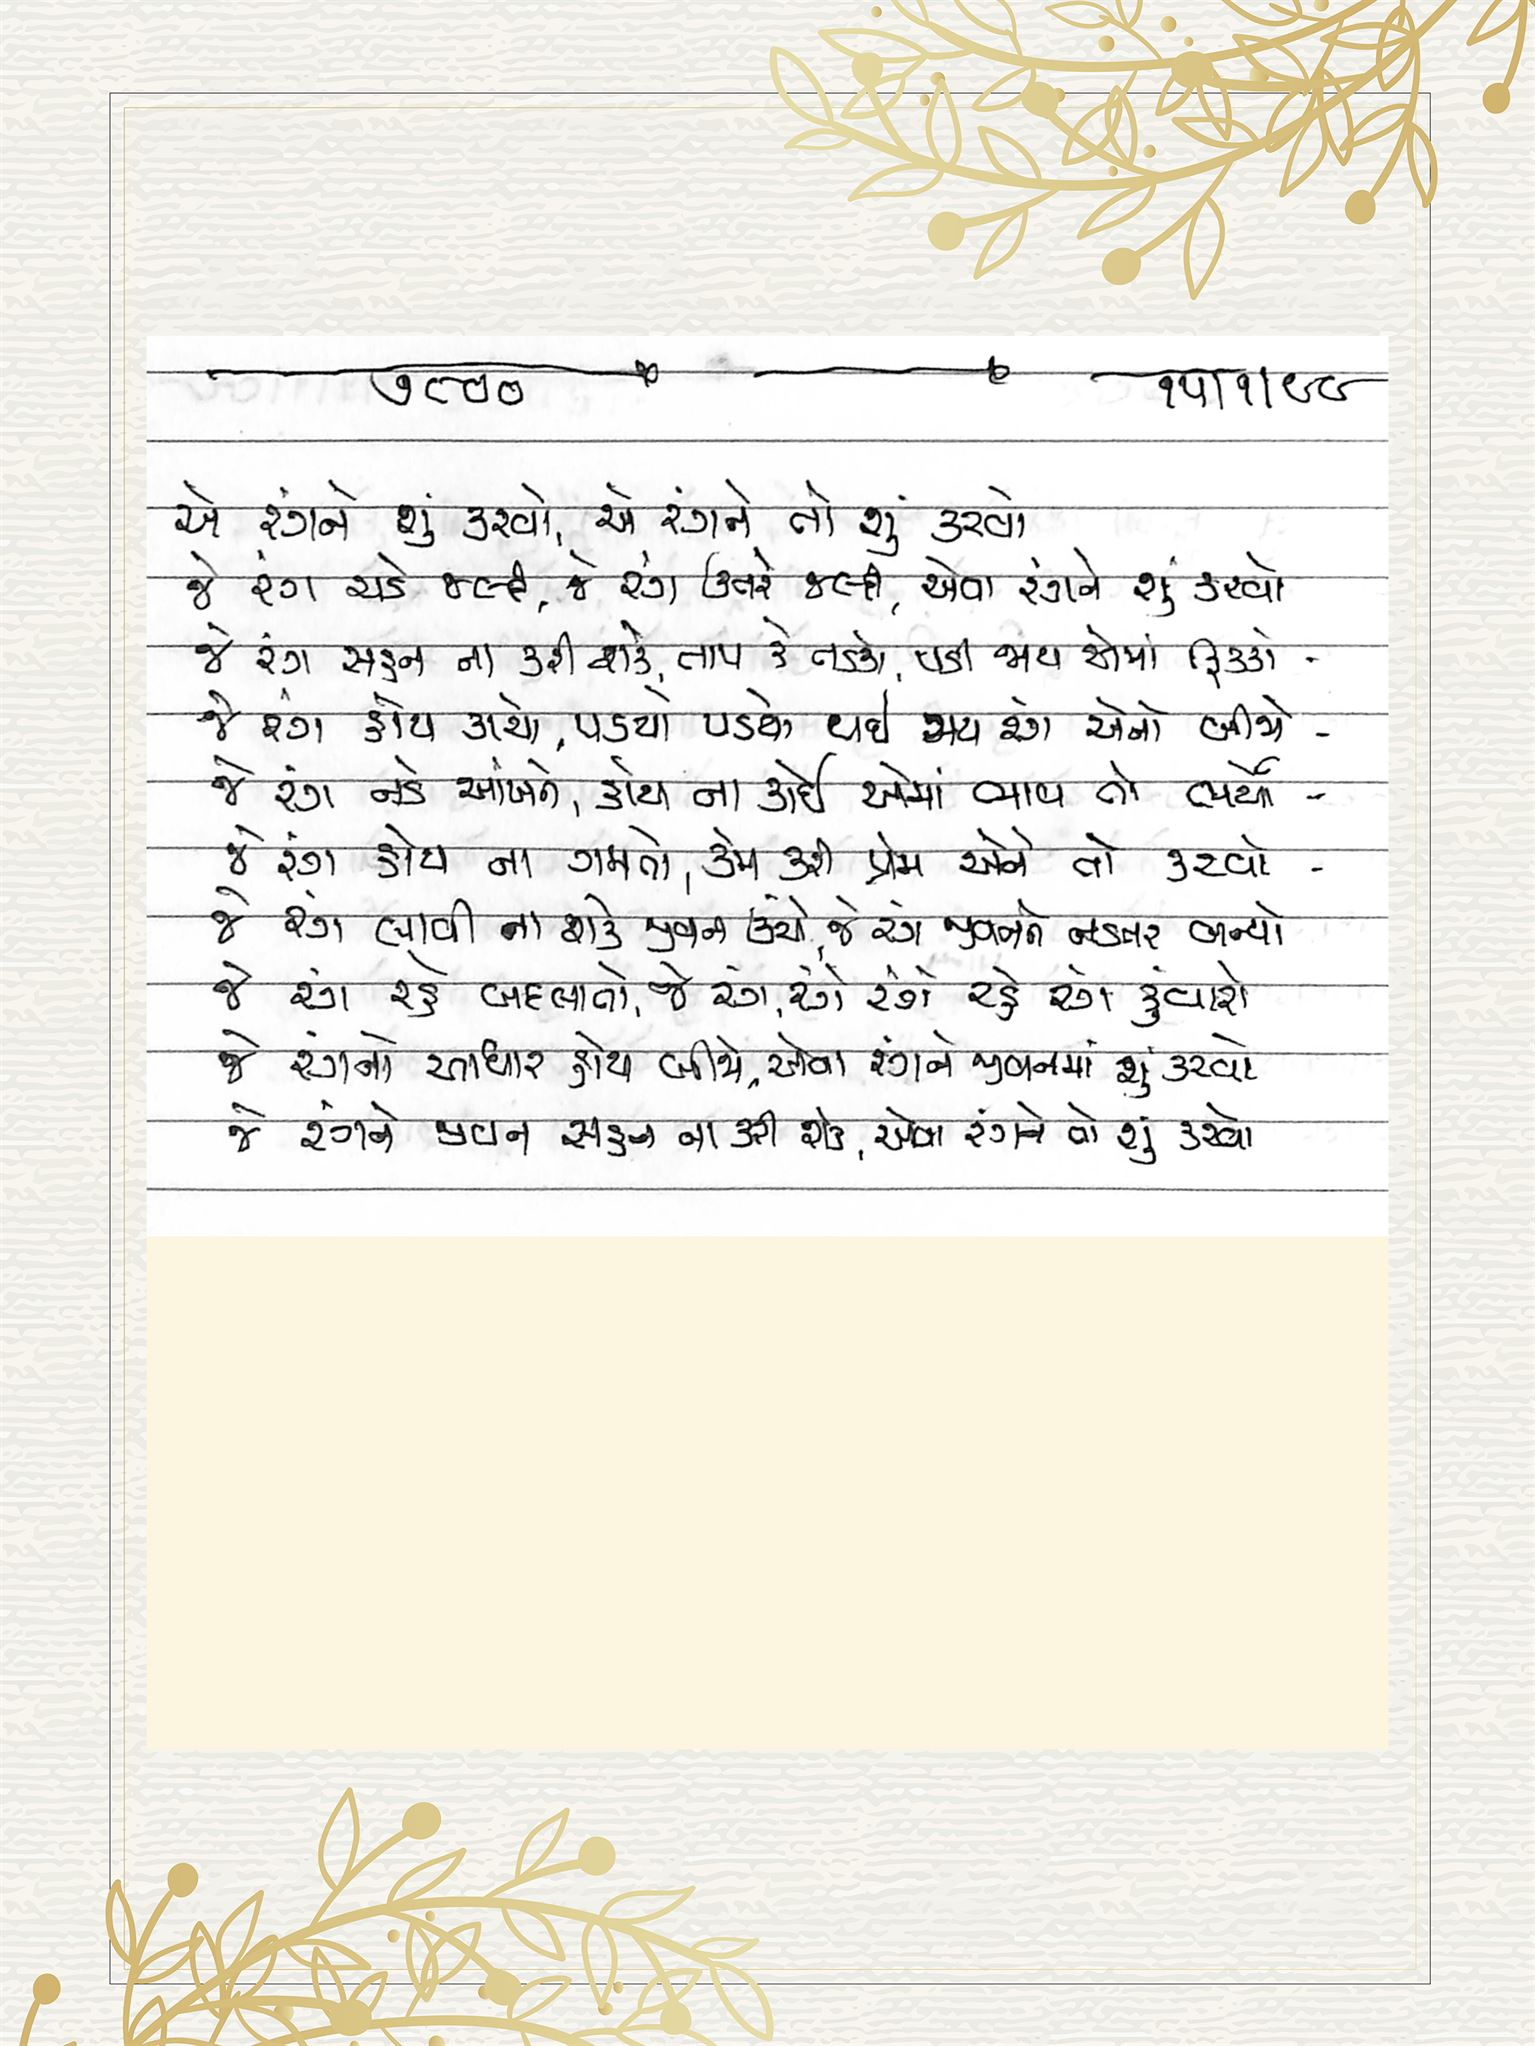 ૭૮૦૦ ૧૫/૧/૯૯
એ રંગને શું કરવો, એ રંગને તો શું કરવો
જે રંગ ચડે જલ્દી, જે રંગ ઉતરે જલ્દી, એવા રંગને શું કરવો
જે રંગ સહન ના કરી શકે, તાપ કે તડકો, પડી જાય એમાં ફિક્કો -
જે રંગ હોય કાચો, પડયો પડયો થઈ જાય રંગ એનો બીજો -
જે રંગ નડે આંખને, હોય ના કોઈ એમાં ભાવ તો ભર્યો -
જે રંગ હોય ના ગમતો, કેમ કરી પ્રેમ એને તો કરવો -
જે રંગ લાવી ના શકે જીવન ઉંચે, જે રંગ જીવનને નડતર બન્યો
જે રંગ રહે બદલાતો, જે રંગ, રંગે રંગે રહે રંગ
જે રંગનો આધાર હોય બીજો, એવા રંગને જીવનમાં શું કરવો
જે રંગને જીવન સહન ના કરી શકે, એવા રંગને તો શું કરવો